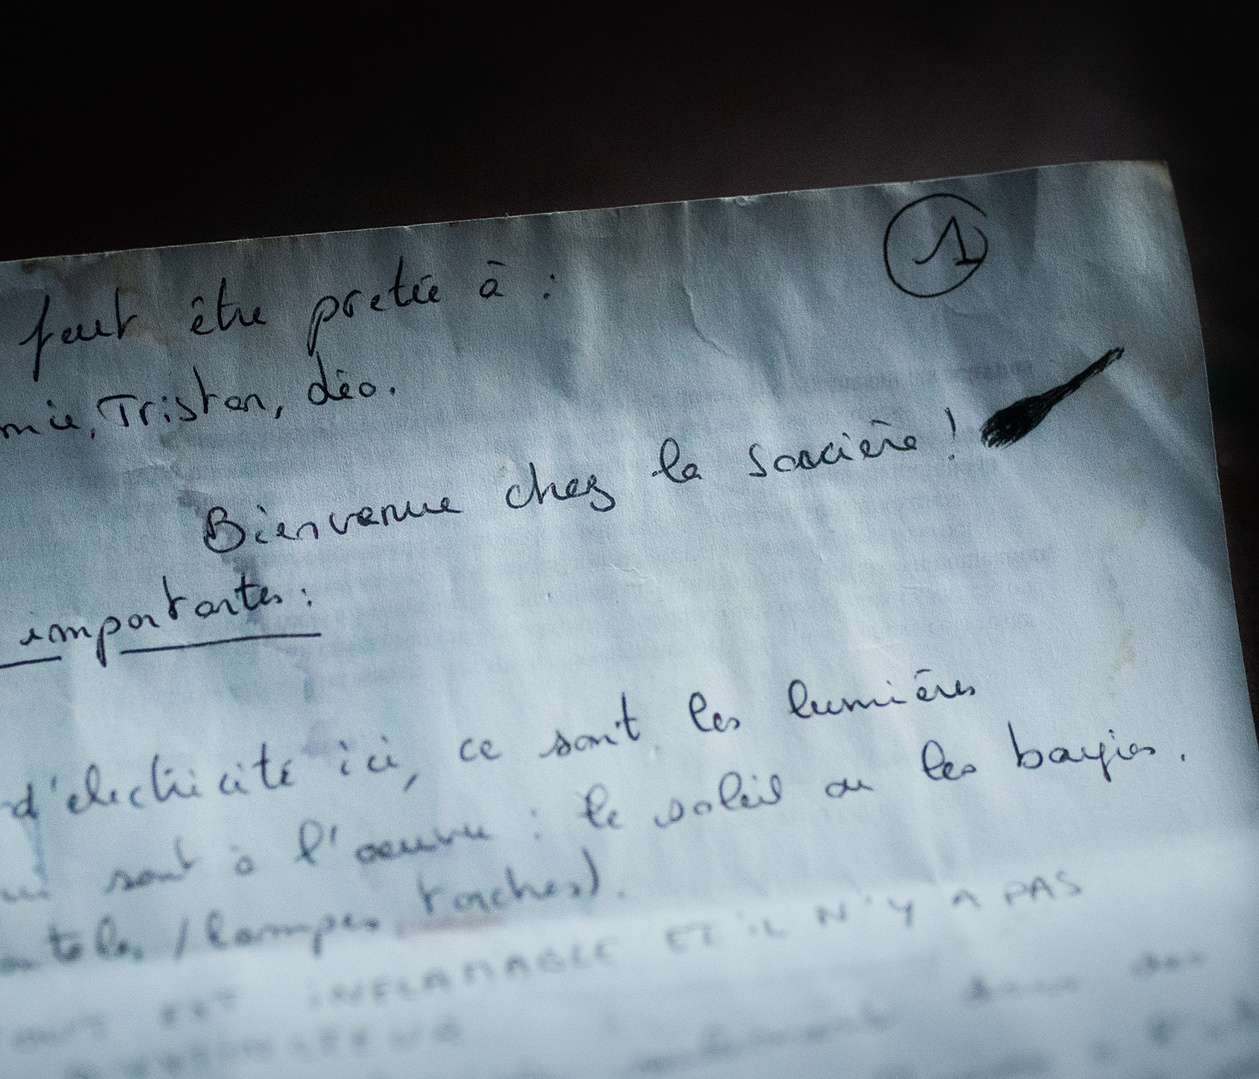 1
feut être pretée à :
mie, Tristan, déo.
Bienvenue chez la sorcière !
importantes :
d'electricité ici, ce sont les lumières
sont à l'oeuvre : le soleil ou les bougies.
/ lampes torches).
EST INFLAMABLE ET IL N'Y A PAS